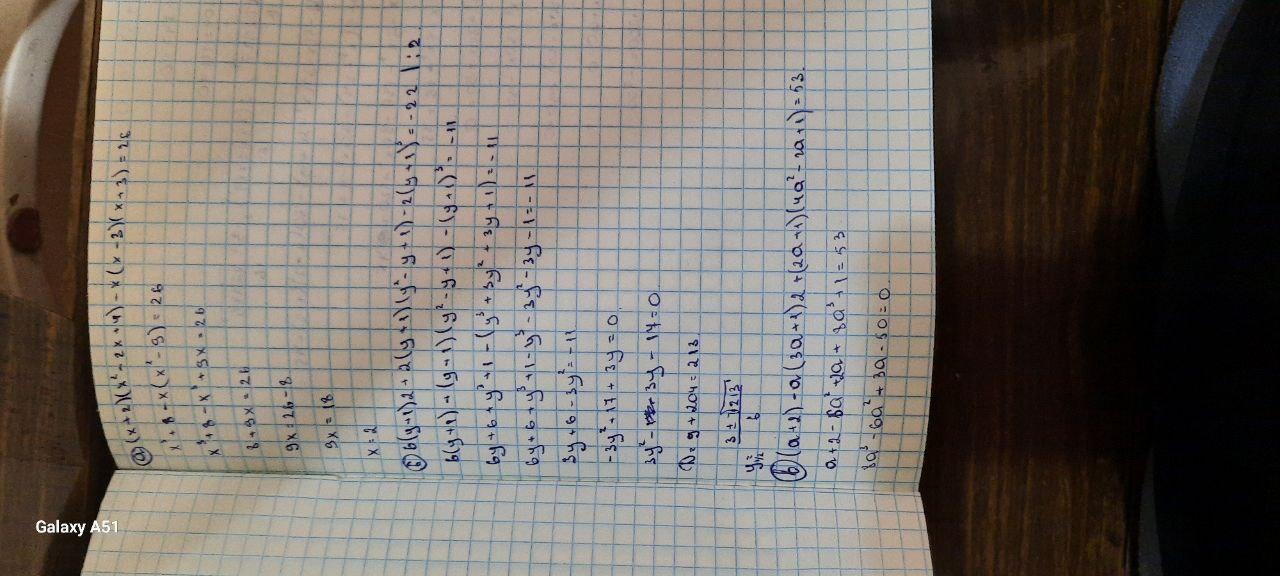 а) (x+2)(x²-2x+4)-x(x-3)(x+3)=26
x³+8-x(x²-9)=26
x³+8-x³+9x=26
8+9x=26
9x=26-8
9x=18
x=2
б) 6(y+1)2+2(y+1)(y²-y+1)-2(y+1)³=-22 |:2
6(y+1)+(y+1)(y²-y+1)-(y+1)³=-11
6y+6+y³+1-(y³+3y²+3y+1)=-11
6y+6+y³+1-y³-3y²-3y-1=-11
3y+6-3y²=-11
-3y²+17+3y=0
3y²-3y-17=0
D=9+204=213
y₁,₂=(3±√213)/6
в) (a+2)-a(3a+1)2+(2a+1)(4a²-2a+1)=53.
a+2-6a²+2a+8a³+1=53
8a³-6a²+3a-50=0
Galaxy A51